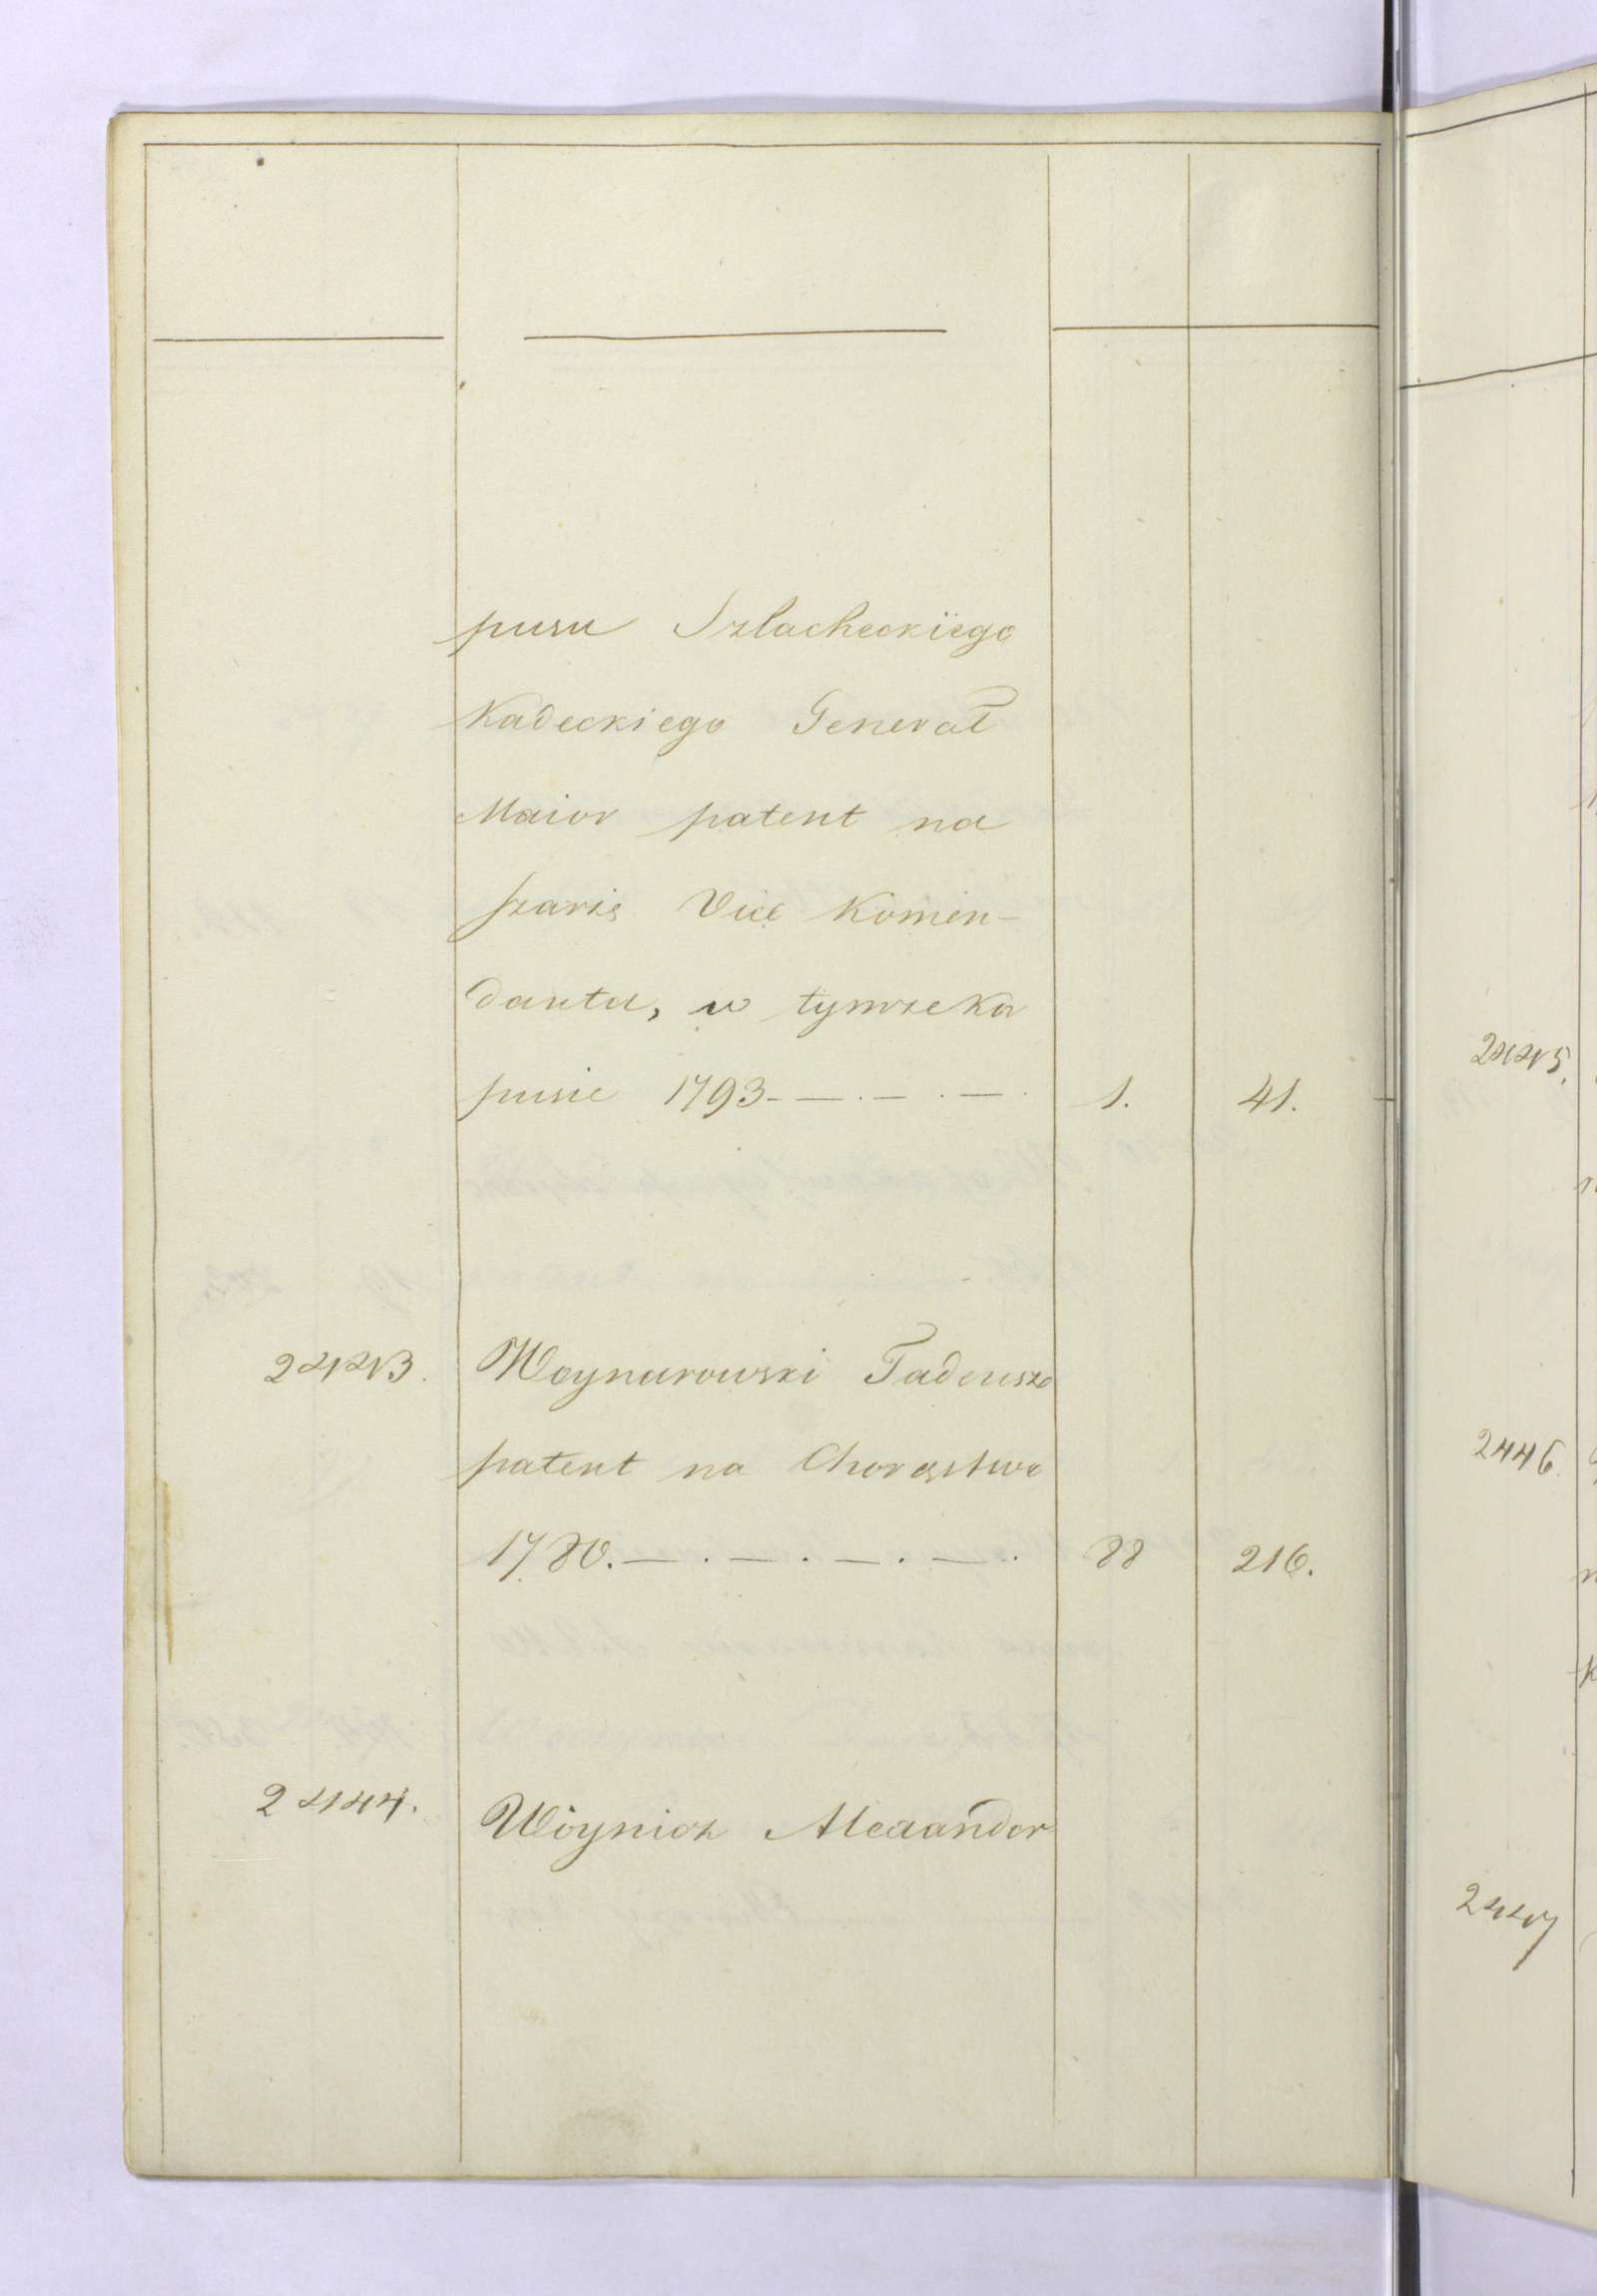 pusu Szlacheckiego
Kadeckiego Generał
Maior patent na
szarżę Vice Komen-
danta, w tymże Kor
pusie 1793 - — . — . — . 1. 41.
2443. Woynarowski Tadeusz
patent na Chorąstwo
1780. — . — . — . — . 88 216.
2444. Woynicz Alexander
2445.
2446.
2447